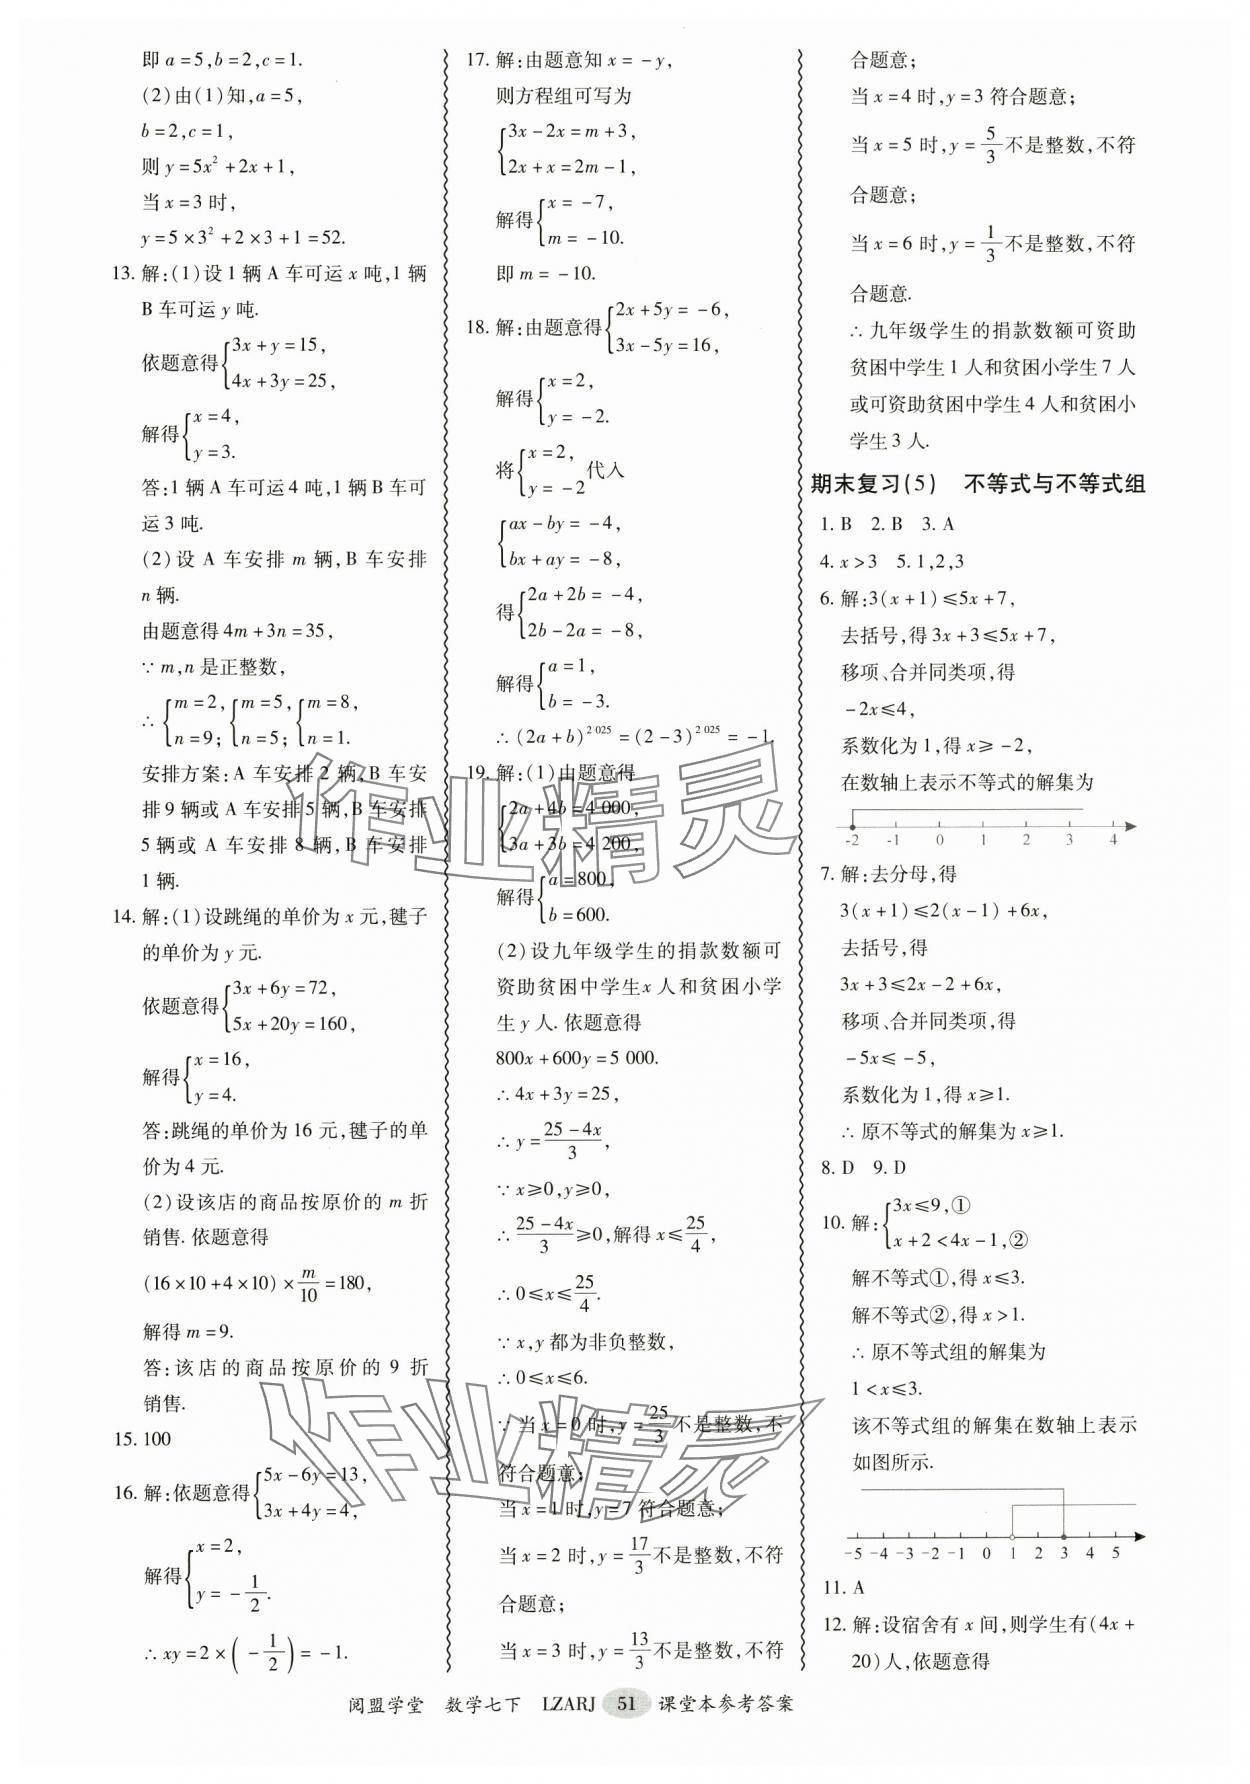 即 a=5,b=2,c=1.
(2)由(1)知,a=5,
b=2,c=1,
则 y=5x²+2x+1,
当 x=3 时,
y=5×3²+2×3+1=52.
13. 解:(1)设 1 辆 A 车可运 x 吨,1 辆
B 车可运 y 吨.
依题意得{3x+y=15,
4x+3y=25,
解得{x=4,
y=3.
答:1 辆 A 车可运 4 吨,1 辆 B 车可
运 3 吨.
(2)设 A 车安排 m 辆,B 车安排
n 辆.
由题意得 4m+3n=35,
∵ m,n 是正整数,
∴ {m=2, {m=5, {m=8,
n=9; n=5; n=1.
安排方案:A 车安排 2 辆,B 车安
排 9 辆或 A 车安排 5 辆,B 车安排
5 辆或 A 车安排 8 辆,B 车安排
1 辆.
14. 解:(1)设跳绳的单价为 x 元,毽子
的单价为 y 元.
依题意得{3x+6y=72,
5x+20y=160,
解得{x=16,
y=4.
答:跳绳的单价为 16 元,毽子的单
价为 4 元.
(2)设该店的商品按原价的 m 折
销售. 依题意得
(16×10+4×10)×m/10=180,
解得 m=9.
答:该店的商品按原价的 9 折
销售.
15. 100
16. 解:依题意得{5x-6y=13,
3x+4y=4,
解得{x=2,
y=-1/2.
∴ xy=2×(-1/2)=-1.
17. 解:由题意知 x=-y,
则方程组可写为
{3x-2x=m+3,
2x+x=2m-1,
解得{x=-7,
m=-10.
即 m=-10.
18. 解:由题意得{2x+5y=-6,
3x-5y=16,
解得{x=2,
y=-2.
将{x=2,
y=-2代入
{ax-by=-4,
bx+ay=-8,
得{2a+2b=-4,
2b-2a=-8,
解得{a=1,
b=-3.
∴ (2a+b)^2 025=(2-3)^2 025=-1.
19. 解:(1)由题意得
{2a+4b=4 000,
3a+3b=4 200,
解得{a=800,
b=600.
(2)设九年级学生的捐款数额可
资助贫困中学生 x 人和贫困小学
生 y 人. 依题意得
800x+600y=5 000.
∴ 4x+3y=25,
∴ y=(25-4x)/3,
∵ x≥0,y≥0,
∴ (25-4x)/3≥0,解得 x≤25/4,
∴ 0≤x≤25/4.
∵ x,y 都为非负整数,
∴ 0≤x≤6.
∵ 当 x=0 时,y=25/3不是整数,不
符合题意;
当 x=1 时,y=7 符合题意;
当 x=2 时,y=17/3不是整数,不符
合题意;
当 x=3 时,y=13/3不是整数,不符
合题意;
当 x=4 时,y=3 符合题意;
当 x=5 时,y=5/3不是整数,不符
合题意;
当 x=6 时,y=1/3不是整数,不符
合题意.
∴ 九年级学生的捐款数额可资助
贫困中学生 1 人和贫困小学生 7 人
或可资助贫困中学生 4 人和贫困小
学生 3 人.
期末复习(5) 不等式与不等式组
1. B 2. B 3. A
4. x>3 5. 1,2,3
6. 解:3(x+1)≤5x+7,
去括号,得 3x+3≤5x+7,
移项、合并同类项,得
-2x≤4,
系数化为 1,得 x≥-2,
在数轴上表示不等式的解集为
-2 -1 0 1 2 3 4
7. 解:去分母,得
3(x+1)≤2(x-1)+6x,
去括号,得
3x+3≤2x-2+6x,
移项、合并同类项,得
-5x≤-5,
系数化为 1,得 x≥1.
∴ 原不等式的解集为 x≥1.
8. D 9. D
10. 解:{3x≤9,①
x+2<4x-1,②
解不等式①,得 x≤3.
解不等式②,得 x>1.
∴ 原不等式组的解集为
1<x≤3.
该不等式组的解集在数轴上表示
如图所示.
-5 -4 -3 -2 -1 0 1 2 3 4 5
11. A
12. 解:设宿舍有 x 间,则学生有(4x+
20)人,依题意得
阅盟学堂 数学七下 LZARJ 51 课堂本参考答案
作业精灵
作业精灵